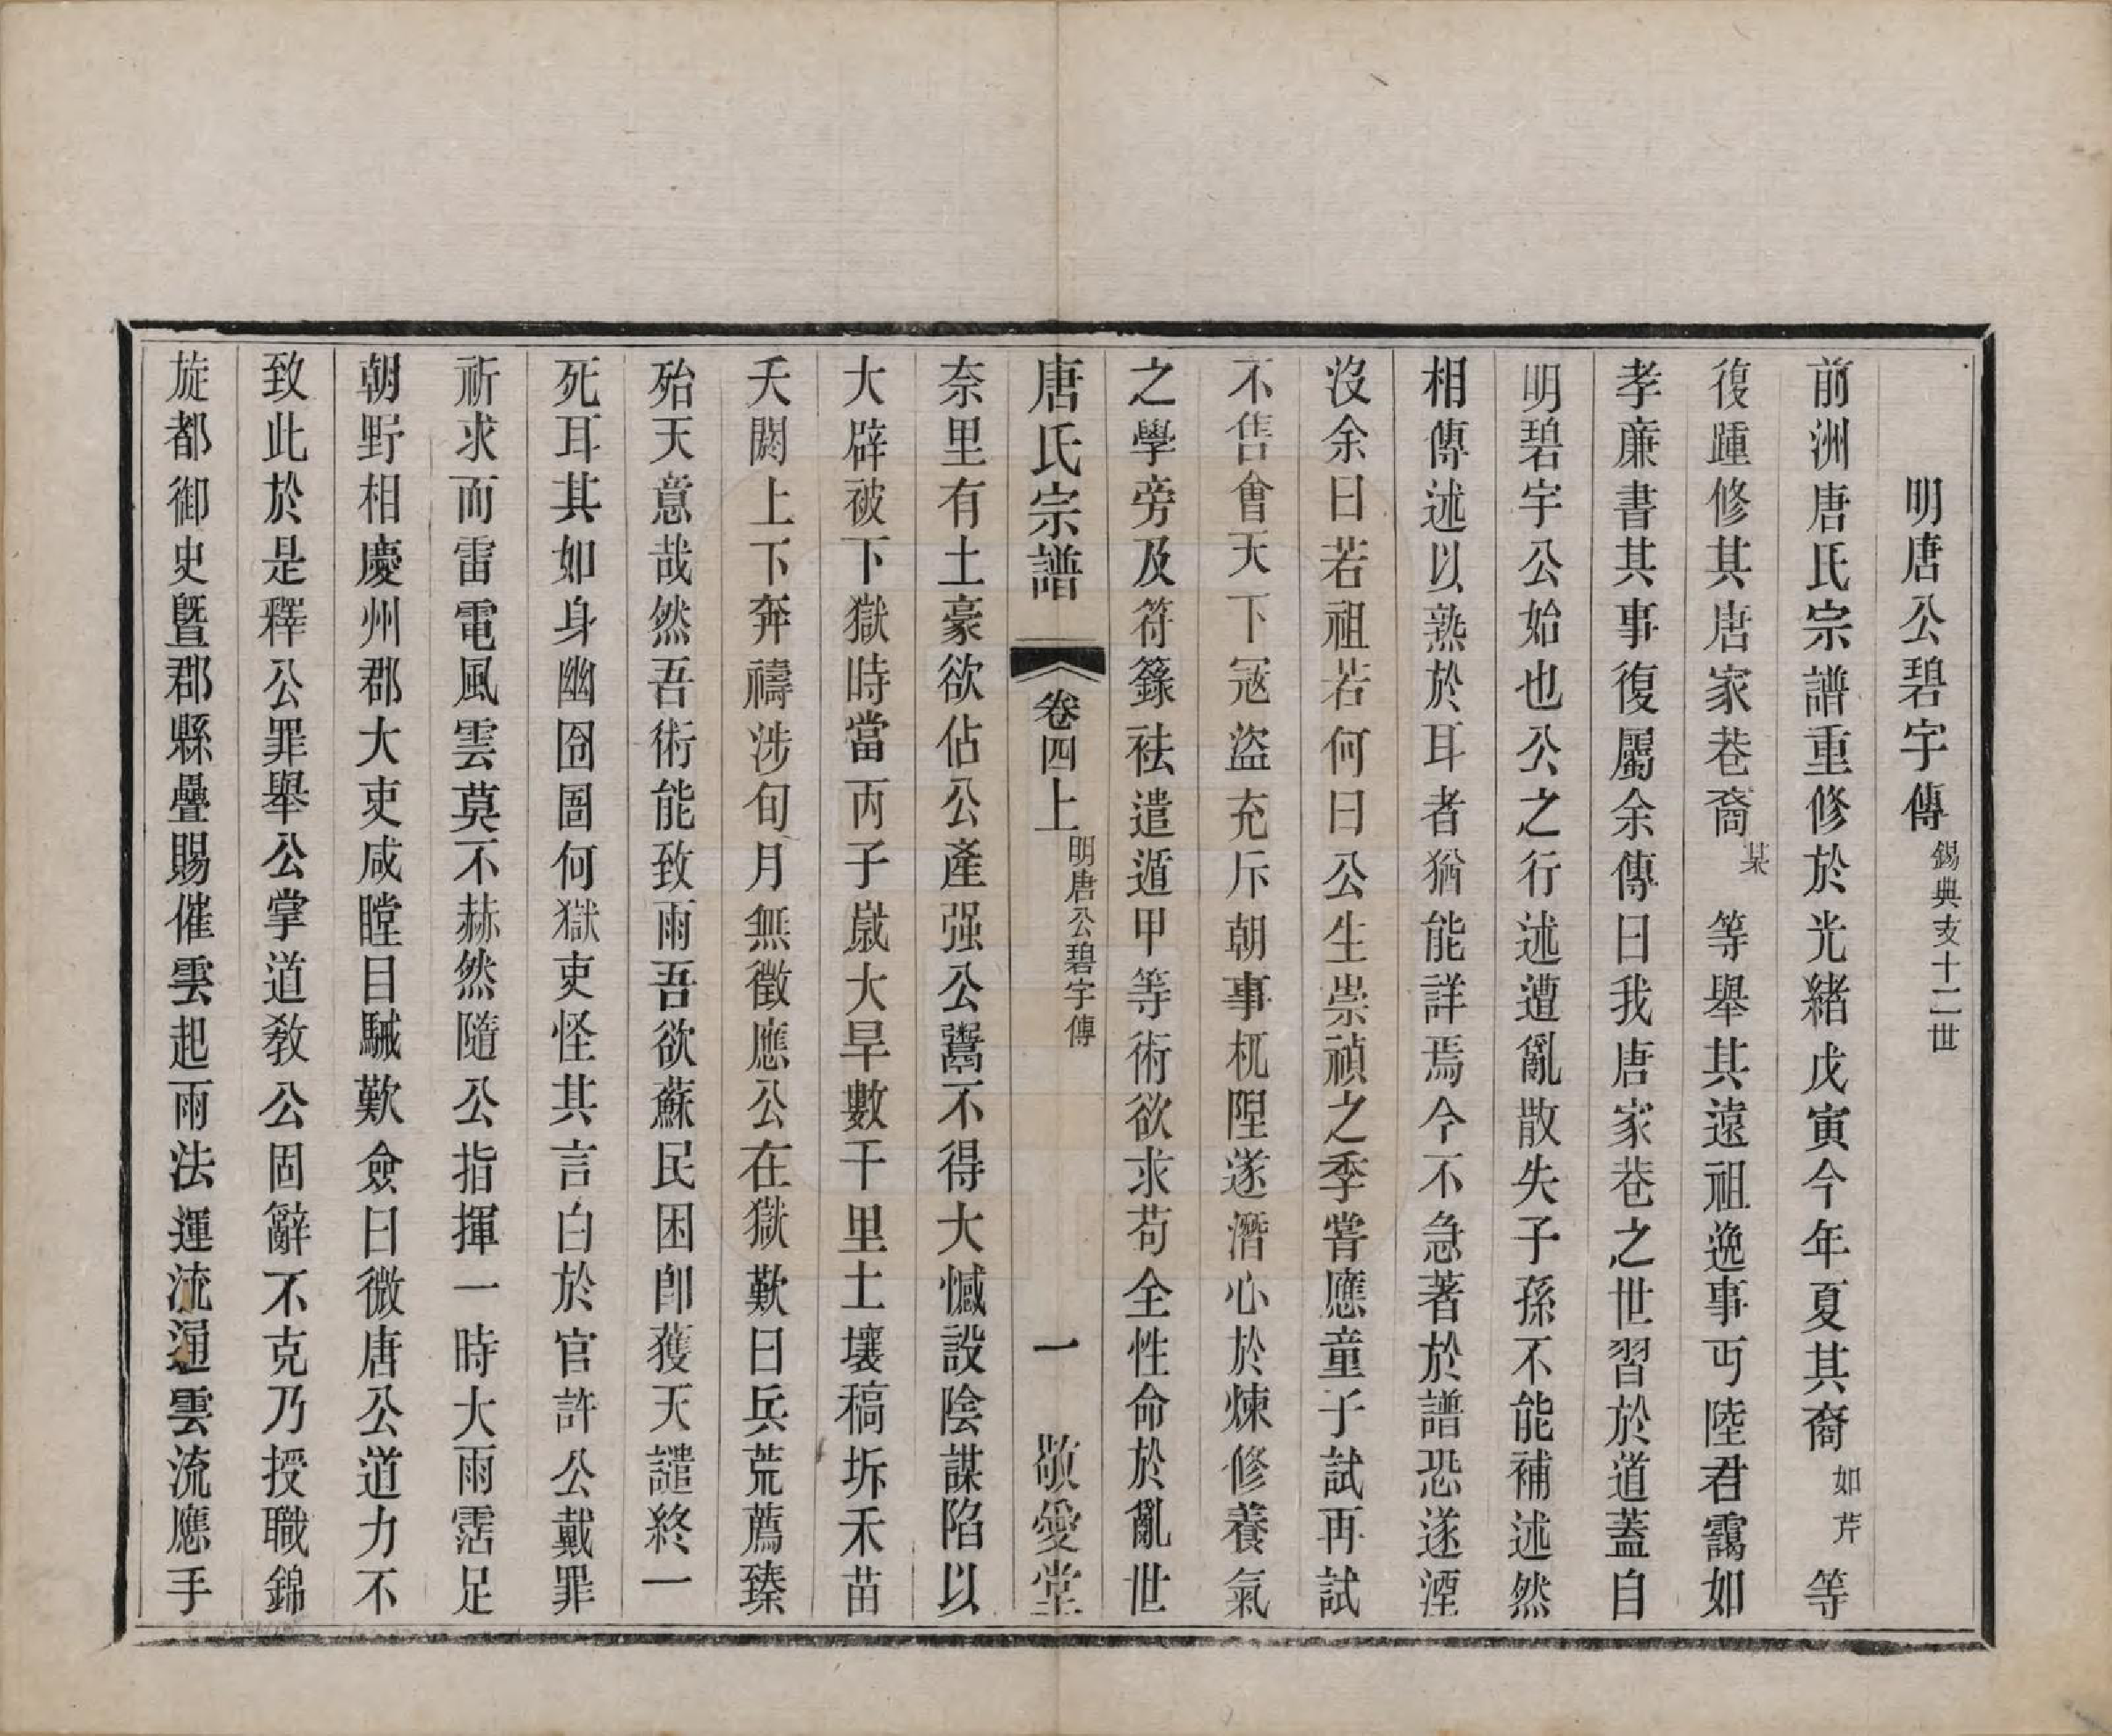 明唐公碧宇傳錫典支十二世
前洲唐氏宗譜重修於光緒戊寅今年夏其裔如芹等
復踵修其唐家巷裔某等舉其遠祖逸事丐陸君靄如
孝廉書其事復屬余傳曰我唐家巷之世習於道蓋自
明碧宇公始也公之行述遭亂散失子孫不能補述然
相傳述以熟於耳者猶能詳焉今不急著於譜恐遂湮
沒余曰若祖若何曰公生崇禎之季嘗應童子試再試
不售會天下寇盜充斥朝事杌隉遂潛心於煉修養氣
之學旁及符籙祛遣遁甲等術欲求苟全性命於亂世
唐氏宗譜 卷四上 明唐公碧宇傳 一 敬愛堂
奈里有土豪欲佔公產强公鬻不得大憾設陰謀陷以
大辟被下獄時當丙子歲大旱數千里土壤稿坼禾苗
夭閼上下奔禱涉旬月無徵應公在獄歎曰兵荒薦臻
殆天意哉然吾術能致雨吾欲蘇民困卽獲天譴終一
死耳其如身幽囹圄何獄吏怪其言白於官許公戴罪
祈求而雷電風雲莫不赫然隨公指揮一時大雨霑足
朝野相慶州郡大吏咸瞠目駴歎僉曰微唐公道力不
致此於是釋公罪舉公掌道教公固辭不克乃授職錦
旋都御史曁郡縣疊賜催雲起雨法運流通雲流應手